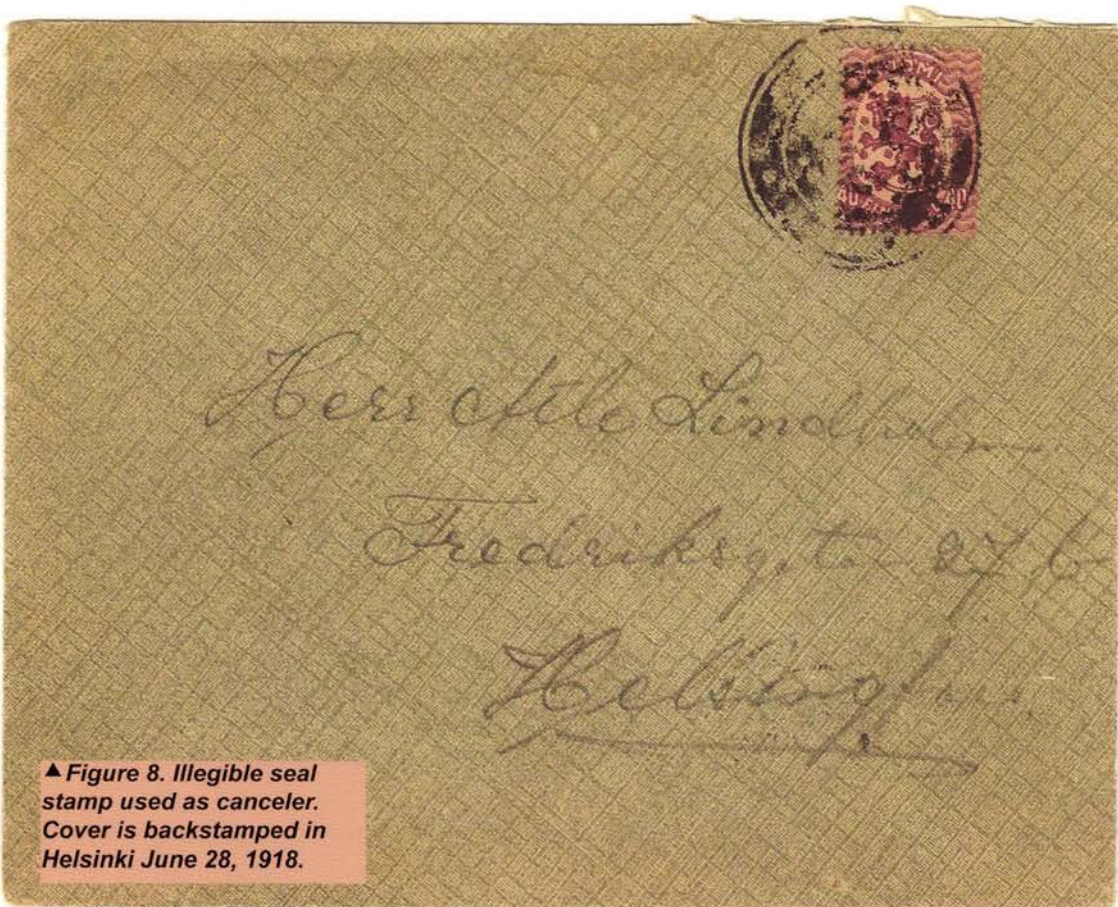 Herr Atle Lindholm
Fredriksg.t. 27 C
Helsingfors
▲ Figure 8. Illegible seal
stamp used as canceler.
Cover is backstamped in
Helsinki June 28, 1918.